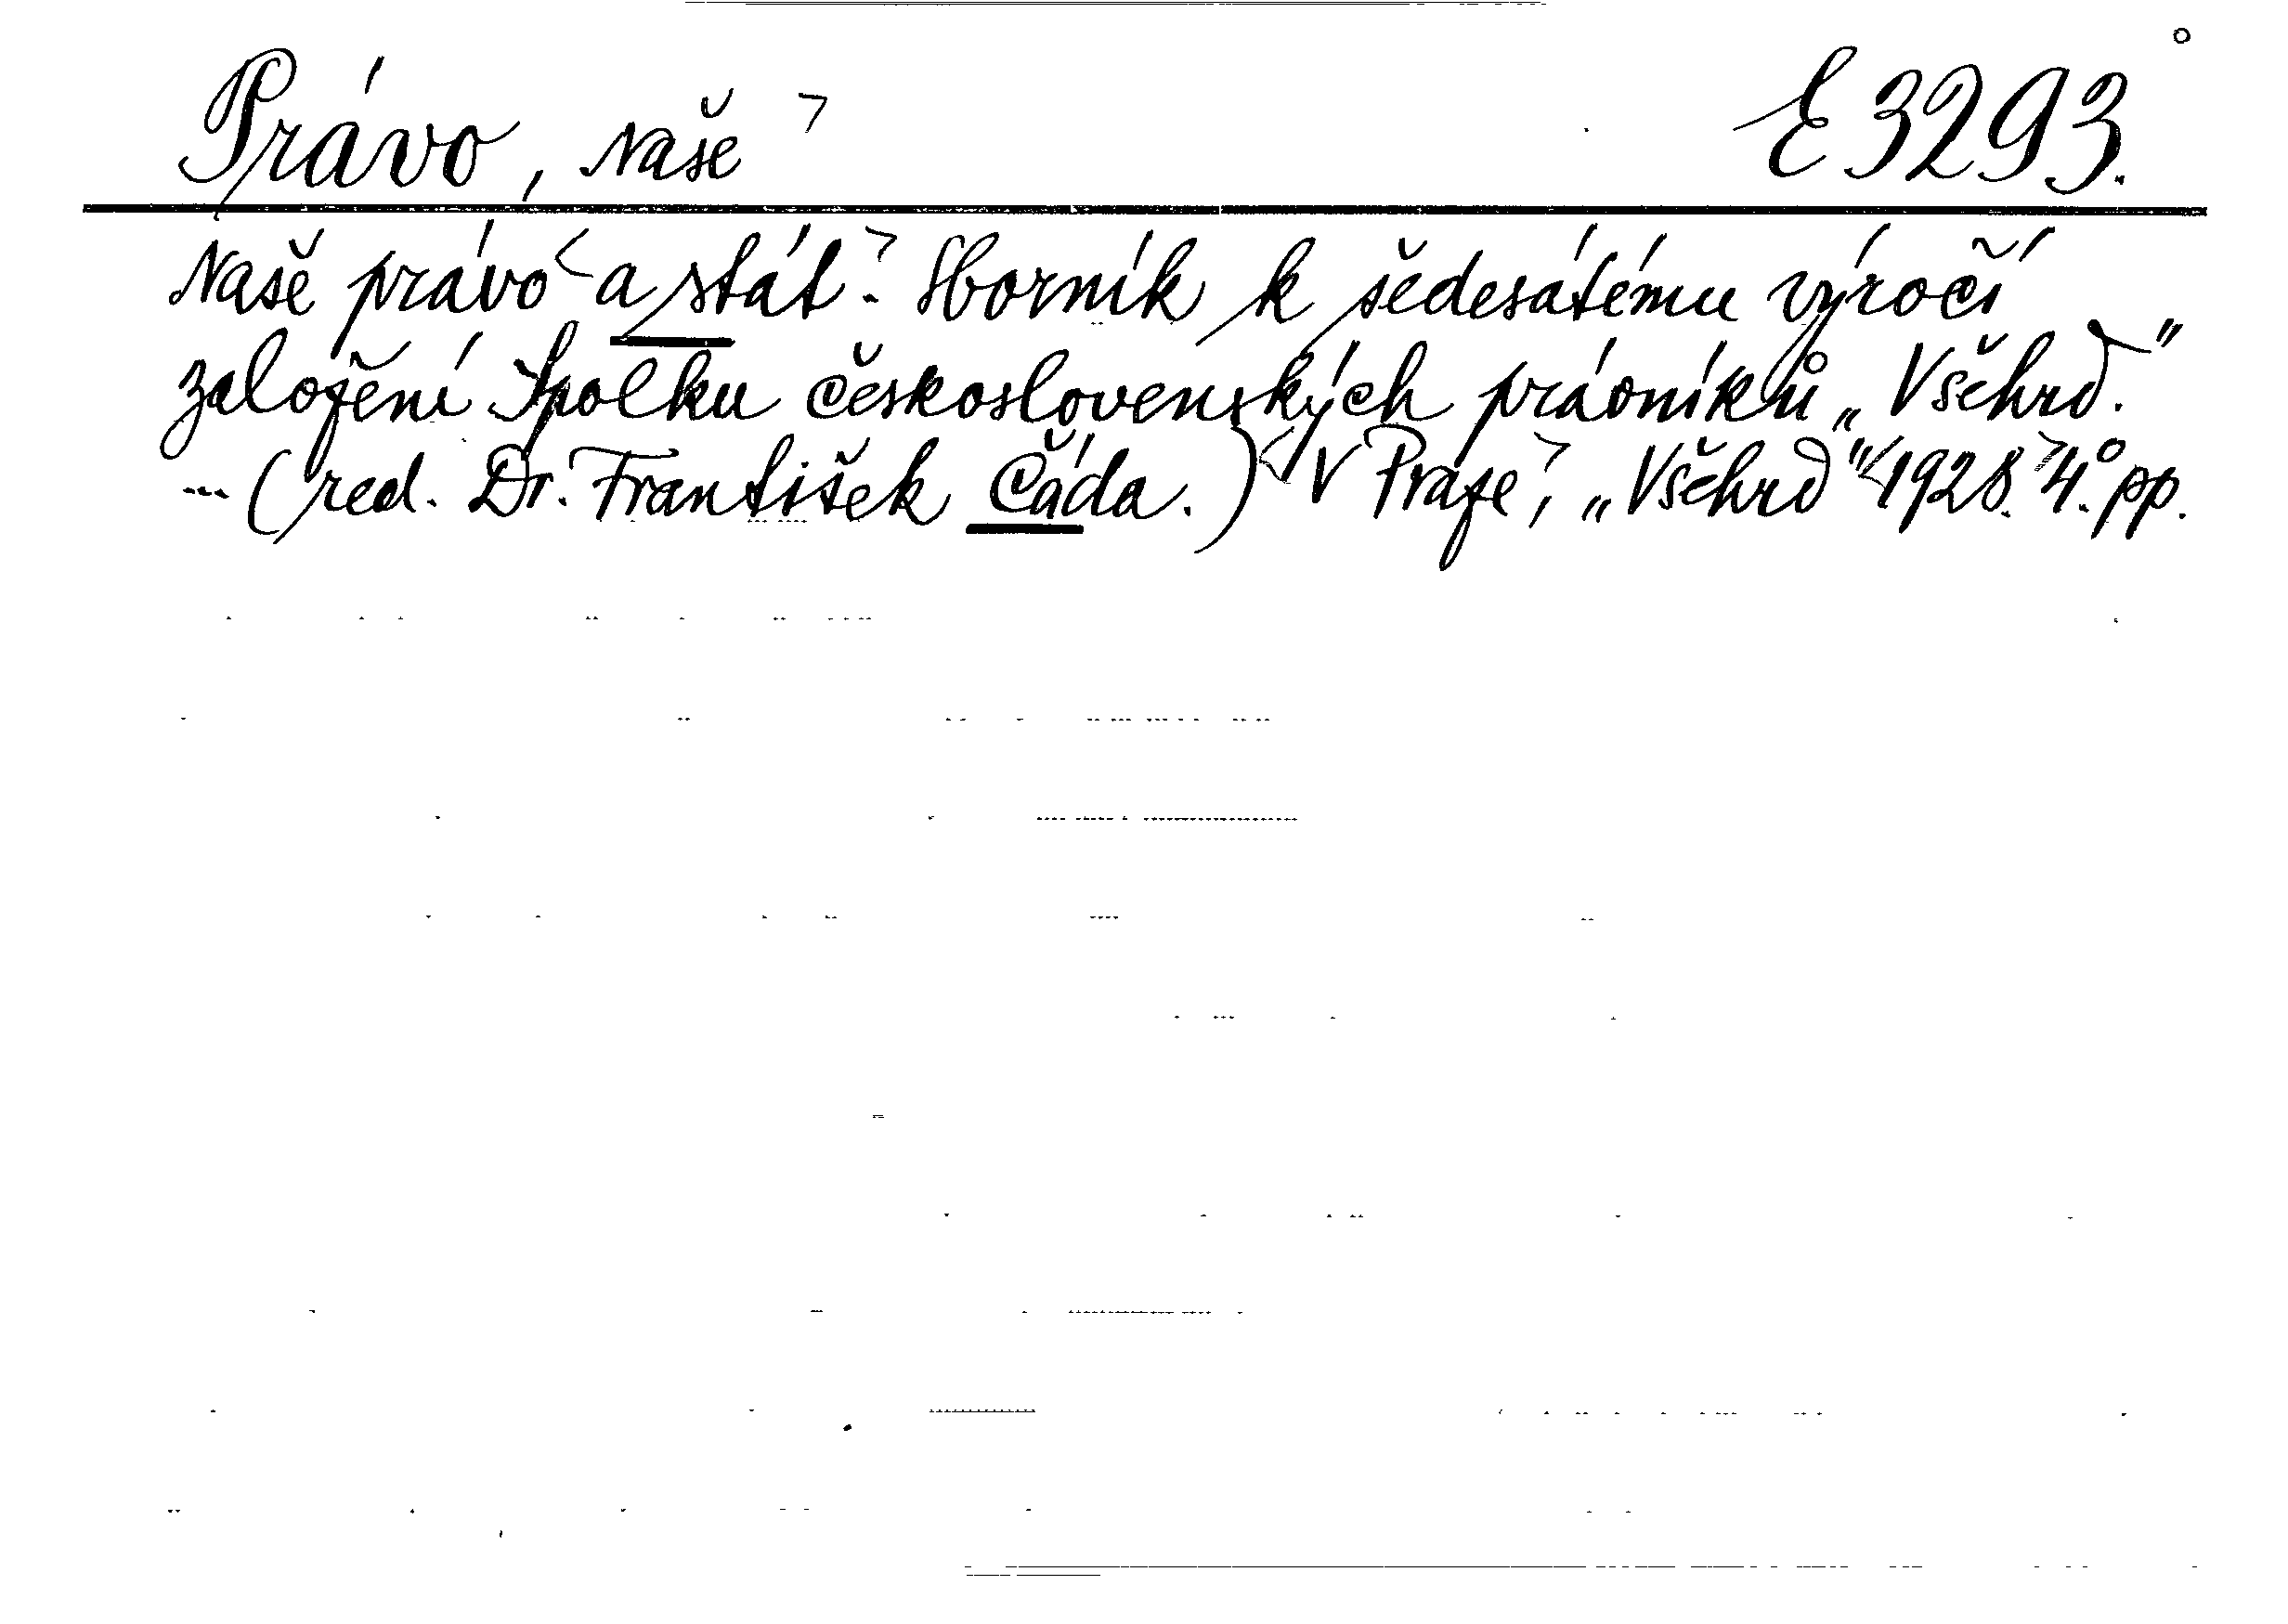 Právo, naše E 3293.
Naše právo a stát. Sborník k šedesátému výročí
založení Spolku československých právníků „Všehrd."
--- (red. Dr. František Čáda.) V Praze, „Všehrd" 1928. 4.° pp.